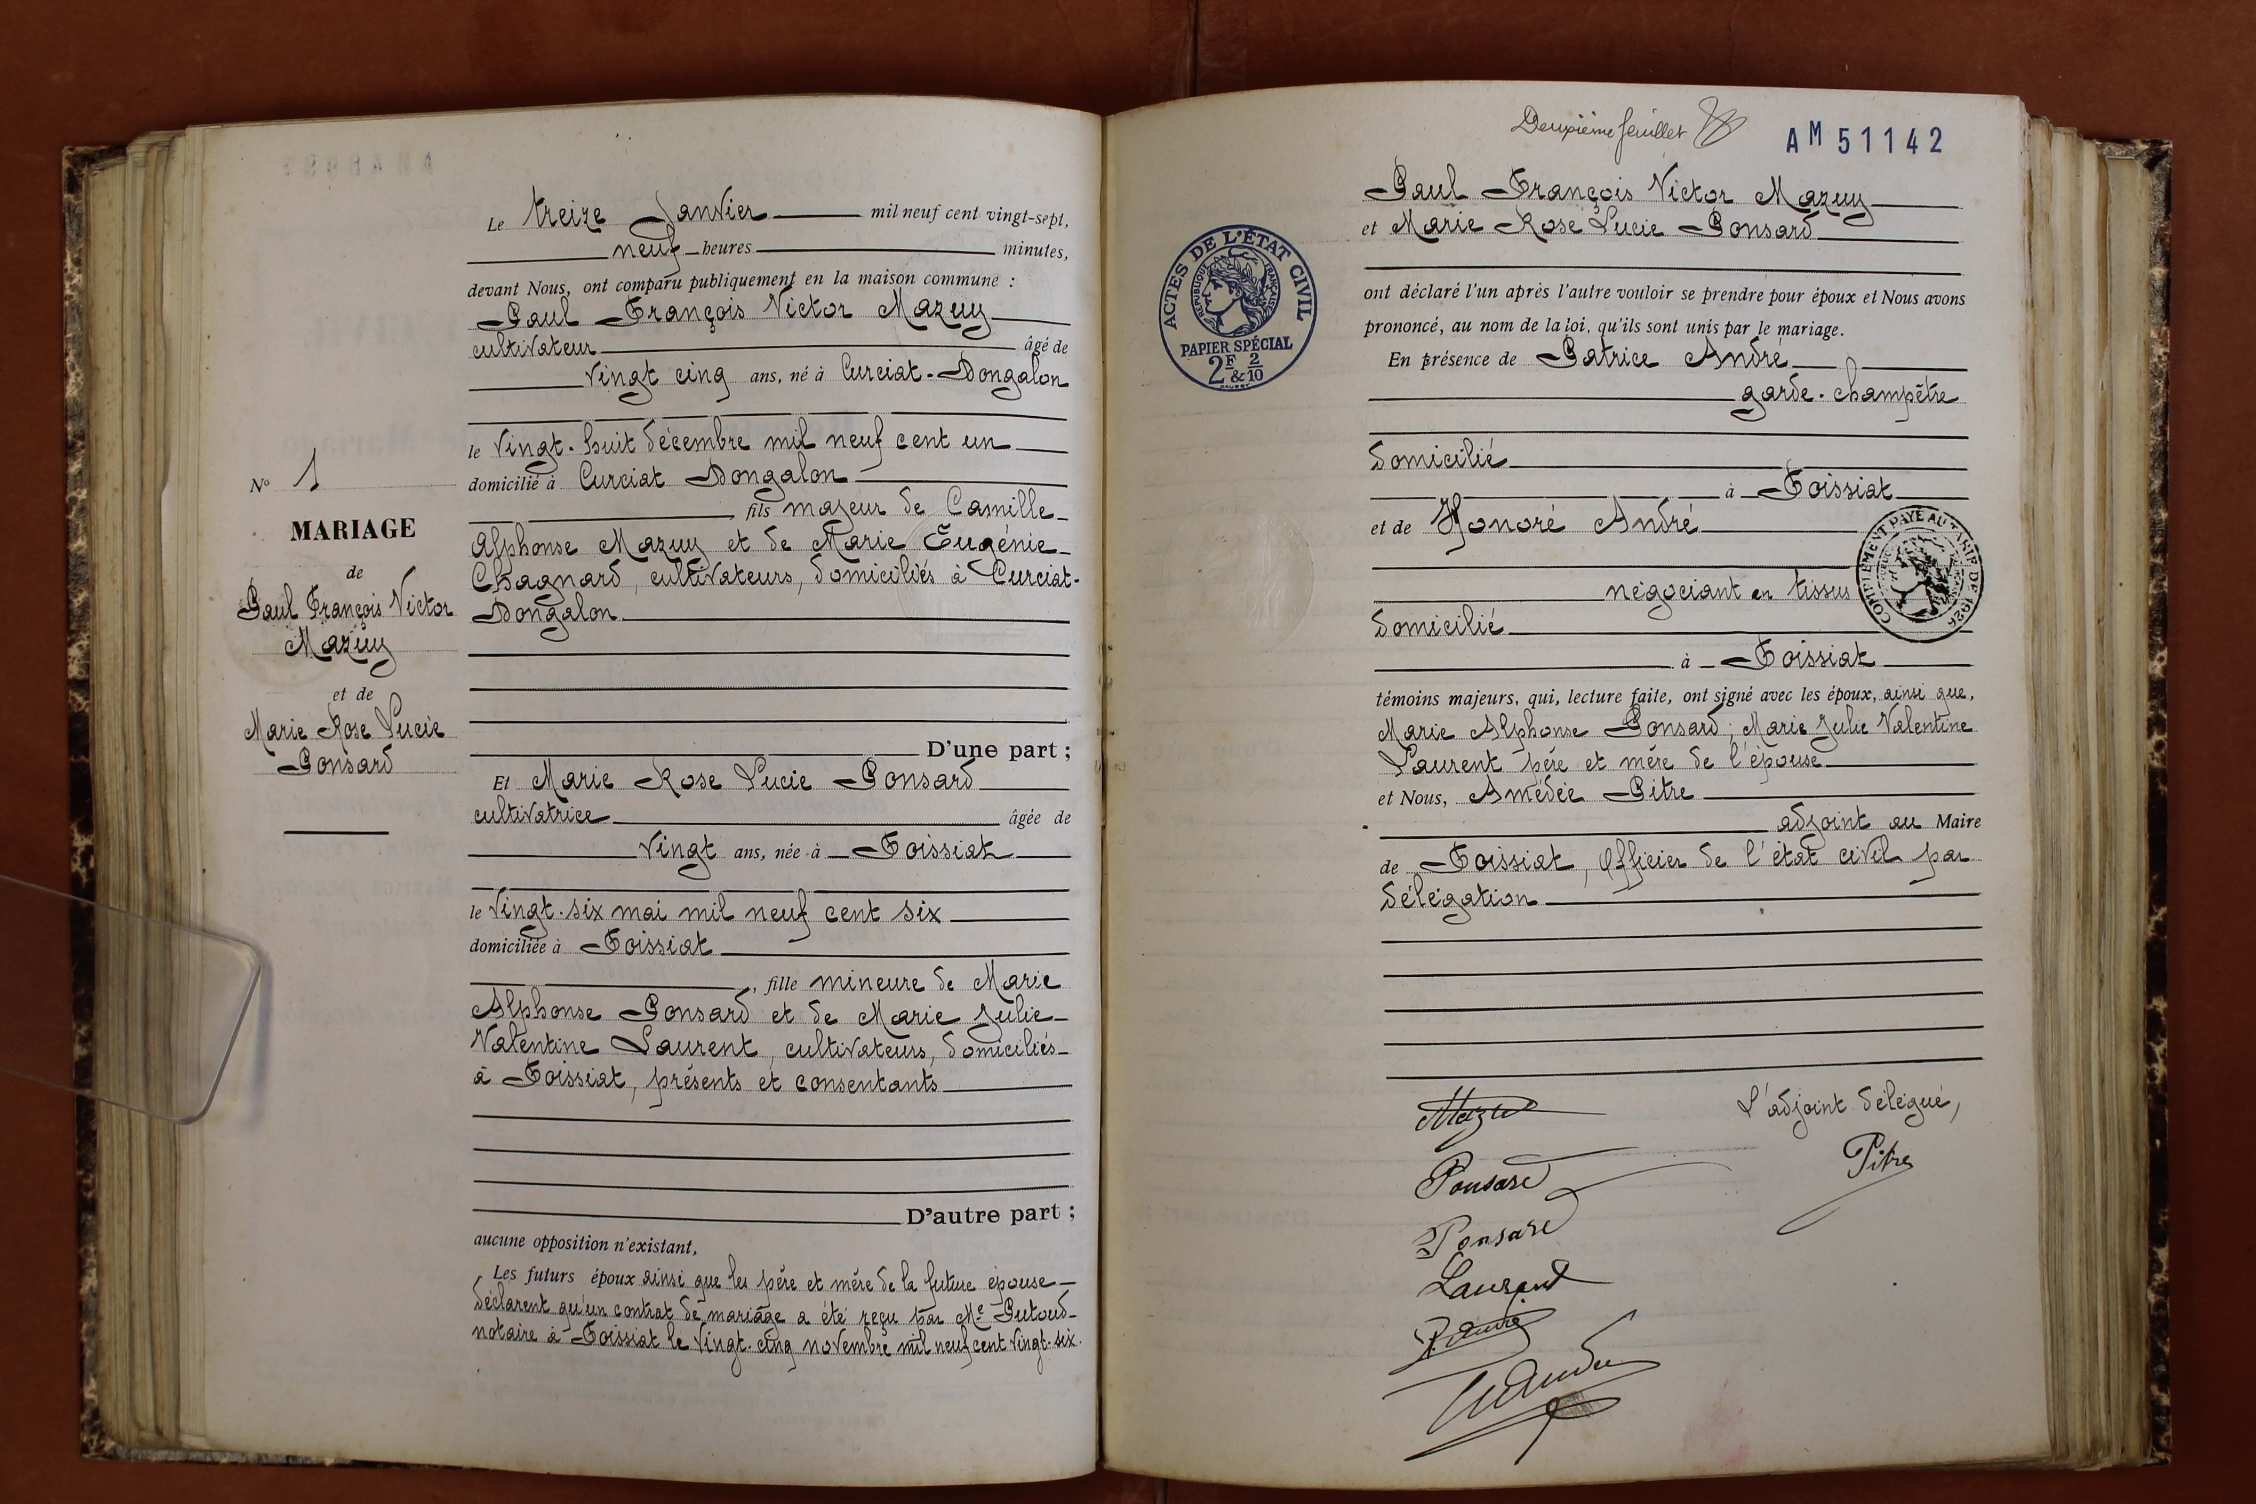 Le treize Janvier mil neuf cent vingt-sept,
neuf heures minutes,
devant Nous, ont comparu publiquement en la maison commune :
Paul François Victor Mazuy
cultivateur âgé de
vingt cinq ans, né à Curciat-Dongalon
le vingt-huit décembre mil neuf cent un
domicilié à Curciat Dongalon
fils majeur de Camille
Alphonse Mazuy et de Marie Eugénie
Chagnard, cultivateurs, domiciliés à Curciat-
Dongalon
D'une part ;
Et Marie Rose Lucie Ponsard
cultivatrice âgée de
vingt ans, née à Foissiat
le vingt-six mai mil neuf cent six
domiciliée à Foissiat
, fille mineure de Marie
Alphonse Ponsard et de Marie Julie
Valentine Laurent, cultivateurs, domiciliés
à Foissiat, présents et consentants
D'autre part ;
aucune opposition n'existant,
Les futurs époux ainsi que les père et mère de la future épouse
déclarent qu'un contrat de mariage a été reçu par Me Putoud
notaire à Foissiat le vingt-cinq novembre mil neuf cent vingt-six.
No 1
MARIAGE
de
Paul François Victor
Mazuy
et de
Marie Rose Lucie
Ponsard
Deuxième feuillet
AM 51142
Paul François Victor Mazuy
et Marie Rose Lucie Ponsard
ont déclaré l'un après l'autre vouloir se prendre pour époux et Nous avons
prononcé, au nom de la loi, qu'ils sont unis par le mariage.
En présence de Patrice André
garde-champêtre
domicilié
à Foissiat
et de Honoré André
négociant en tissus
domicilié
à Foissiat
témoins majeurs, qui, lecture faite, ont signé avec les époux, ainsi que,
Marie Alphonse Ponsard, Marie Julie Valentine
Laurent père et mère de l'épouse
et Nous, Amédée Pitre
adjoint au Maire
de Foissiat, Officier de l'état civil par
délégation
ACTES DE L'ÉTAT CIVIL
RÉPUBLIQUE FRANÇAISE
PAPIER SPÉCIAL
2F & 2/10
COMPLÉMENT PAYÉ AU TARIF DE 1926
Mazuy
Ponsard
Ponsard
Laurent
L'adjoint délégué,
Pitre